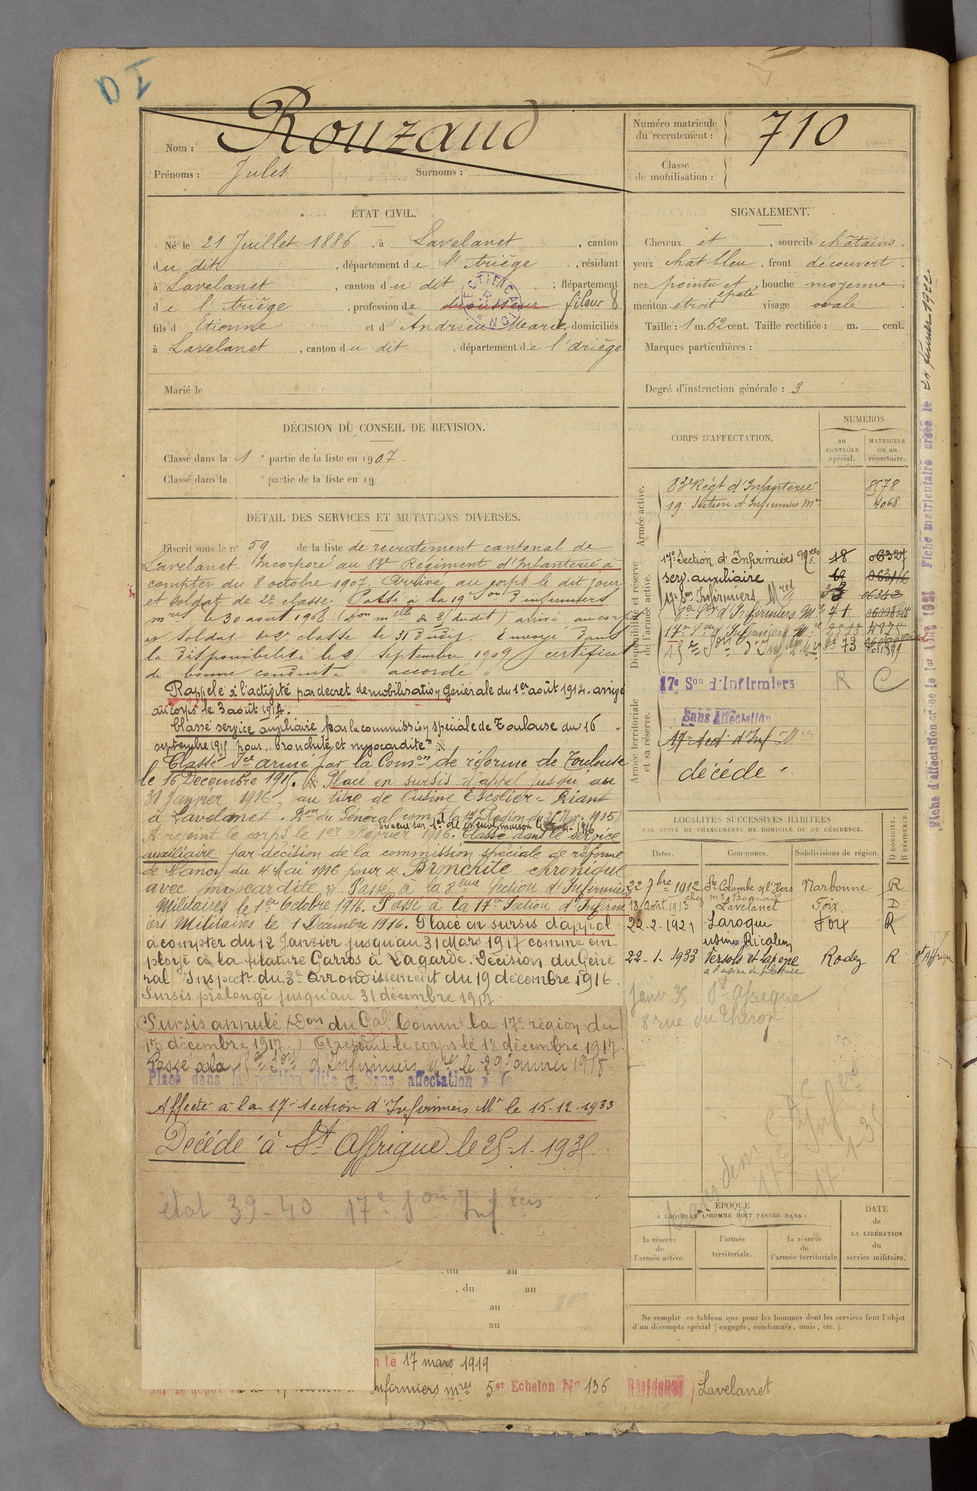 DI
Nom : Rouzaud
Prénoms : Jules Surnoms :
Numéro matricule du recrutement : 710
Classe de mobilisation :
ÉTAT CIVIL.
Né le 21 Juillet 1886, à Lavelanet, canton
du dit, département de l'Ariège, résidant
à Lavelanet, canton du dit, département
de l'Ariège, profession de fileur 8
fils d'Etienne et d'Andrieu Marie domiciliés
à Lavelanet, canton du dit, département de l'Ariège
Marié le
SIGNALEMENT.
Cheveux et, sourcils châtains.
yeux chat bleu, front découvert
nez pointu et épaté, bouche moyenne
menton étroit visage ovale
Taille : 1 m. 62 cent. Taille rectifiée : m. cent.
Marques particulières :
Degré d'instruction générale : 3
DÉCISION DU CONSEIL DE REVISION.
Classé dans la 1e partie de la liste en 1907.
Classé dans la e partie de la liste en 19
DÉTAIL DES SERVICES ET MUTATIONS DIVERSES.
Inscrit sous le n° 59 de la liste de recrutement cantonal de
Lavelanet. Incorporé au 83e Régiment d'Infanterie à
compter du 8 octobre 1907. Arrivé au corps le dit jour
et soldat de 2e classe. Passé à la 19e Son d'infirmiers
mres le 30 août 1908 arrivé au corps
et soldat de 2e classe le 31 dudit. Envoyé dans
la disponibilité le Septembre 1909 certificat
de bonne conduite accordé.
Rappelé à l'activité par décret de mobilisation générale du 1er août 1914. arrivé
au corps le 3 août 1914.
Classé service auxiliaire par la commission spéciale de Toulouse du 16
septembre 191 pour "bronchite et myocardite"
Classé Sce armé par la Comon de réforme de Toulouse
le 16 Décembre 1915. Placé en sursis d'appel jusqu'au
31 Janvier 1916, au titre de l'usine Escolier-Riant
à Lavelanet. Don du Général comt la 17e Région du 1915)
A rejoint le corps le 1er Février 1916. Classé dans le service
auxiliaire par décision de la commission spéciale de réforme
de Nancy du 4 Mai 1916 pour "Bronchite chronique
avec myocardite". Passé à la Section d'Infirmiers
Militaires le 1er Octobre 1916. Passé à la 17e Section d'Infirm
iers Militaires le 1 Décembre 1916. Placé en sursis d'appel
à compter du 12 Janvier jusqu'au 31 Mars 1917 comme em-
ployé à la filature Garros à Lagarde. Décision du Géné
ral Inspectr du 3e arrondissement du 19 décembre 1916.
Sursis prolongé jusqu'au 31 décembre 1917
Sursis annulé (Don du Gal Commt la 17e région du
13 décembre 1917.) A rejoint le corps le 18 décembre 1917.
Passé à la Son d'Infirmiers mres le janvier 1918.
Placé dans la position dite Sans affectation
Affecté à la 17e Section d'Infirmiers Mres le 15-12-1933
Décédé à St Affrique le 25-1-1935.
état 39-40 17e Son Infiers
du au
du au
au
au
le 17 mars 1919
Infirmiers mres 5er Echelon No 136 Résidence Lavelanet
CORPS D'AFFECTATION.
NUMÉROS
au CONTRÔLE spécial.
MATRICULE ou au répertoire.
Armée active.
83e Régt d'Infanterie 8578
19 Section d'Infirmiers Mres 4068
Disponibilité et réserve de l'armée active.
17e Section d'Infirmiers Mres 18 06327
serv. auxiliaire
Armée territoriale et sa réserve.
17e Son d'Infirmiers R C
Sans Affectation
17e Sect. d'Inf. Mres
décédé
LOCALITÉS SUCCESSIVES HABITÉES
PAR SUITE DE CHANGEMENTS DE DOMICILE OU DE RÉSIDENCE.
Dates. Communes. Subdivisions de région. D DOMICILE. R RÉSIDENCE.
22 7bre 1912 Ste Colombe s/ l'Hers Narbonne R
13 Août 1913 Lavelanet Foix D
22-2-1921 Laroque Foix R
usine Ricalens
22-1-1933 Versols et Lapeyre Rodez R St Affrique
Janv 35 St Affrique
8 rue du Théron
17-1-35
ÉPOQUE
À LAQUELLE L'HOMME DOIT PASSER DANS :
la réserve de l'armée active.
l'armée territoriale.
la réserve de l'armée territoriale
DATE de LA LIBÉRATION du service militaire.
Ne remplir ce tableau que pour les hommes dont les services font l'objet
d'un décompte spécial (engagés, condamnés, omis, etc.).
Fiche d'affectation créée le 1er Aoû 1927 Fiche matriculaire créée le 24 février 1922